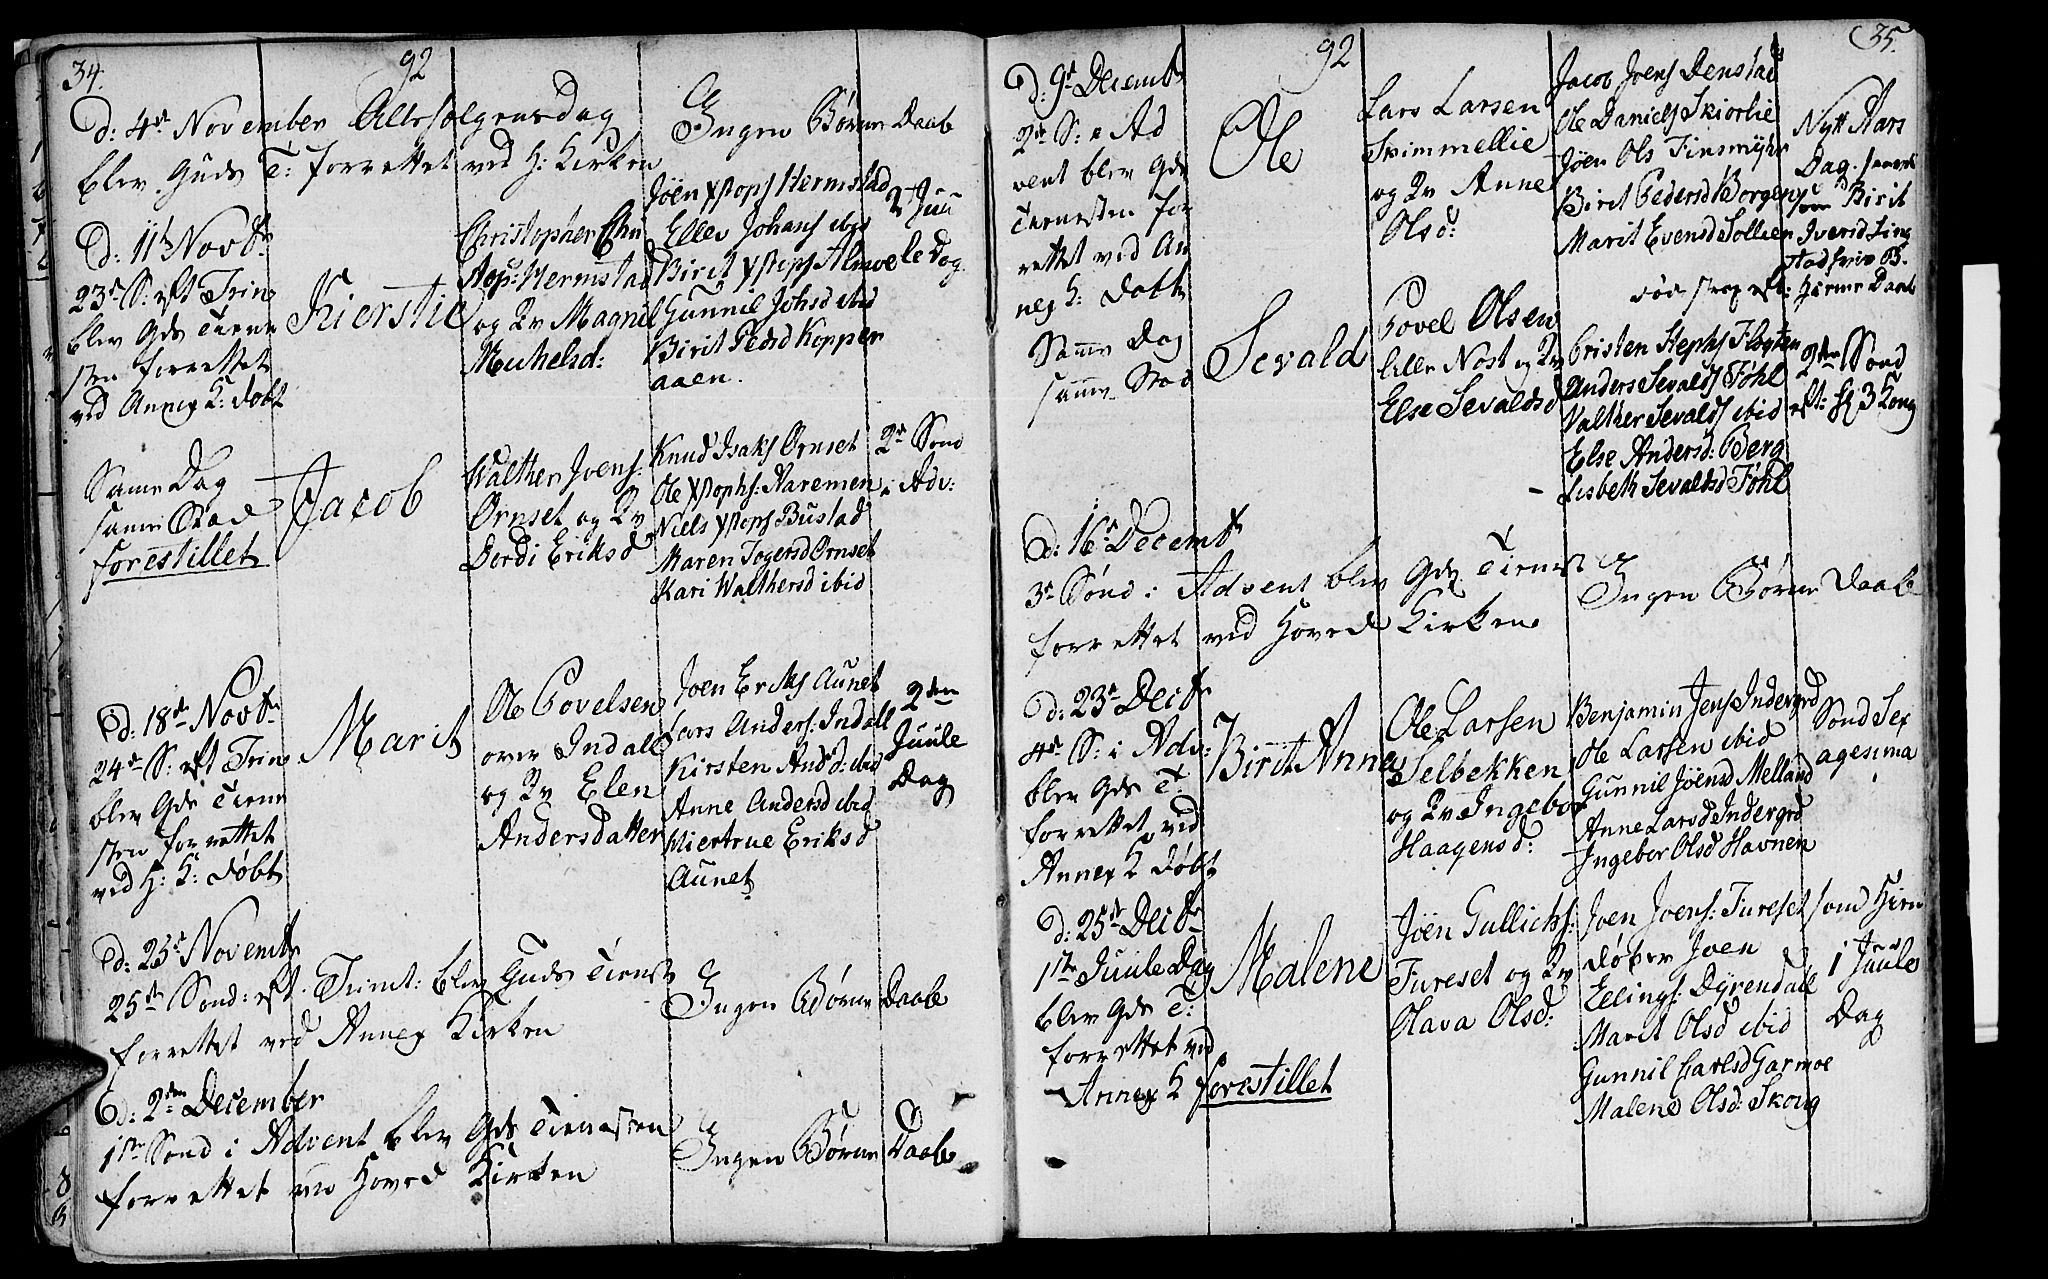 34.
92
d: 4de November Allehelgensdag
blev Guds T: forrettet ved H: Kirken
Ingen Børne Daab
d: 11te Novbr
23de S: eft Trin
blev Gds Tiene
sten forrettet
ved Annex K: døbt
Kierstie
Christopher Chri
stop: Hermstad
og Qv Magnil
Michelsd:
Joen Xstops Hermstad
Ellev Johans ibid
Birit Xstops Almoe
Gunnil Johsd ibid
Birit Pedsd Kopper
aaen.
2 Juu
le Dag
Same Dag
same Stad
forestillet
Jacob
Walther Joens:
Ørnset og Qv
Dordi Eriksd
Knud Isaks Ørnset
Ole Xstophs: Haremen
Niels Xstops Bustad
Maren Togersd Ørnset
Kari Walthersd ibid
2de Sond
i Adv:
d: 18de Novbr
24de S: eft Trin
blev Gds Tiene
sten forrettet
ved H: K: døbt
Marit
Ole Povelsen
over Indall
og Qv Elen
Andersdatter
Joen Eriks Aunet
Lars Anders: Indall
Kirsten Andsd: ibid
Anne Andersd ibid
Kiertrue Eriksd
Aunet
2den
Juule
Dag
d: 25de Novembr
25de Sond: eft. Trinit: blev Guds Tienst
forrettet ved Annex Kirken
Ingen Børne Daab
d: 2den December
1ste Sond i Advent blev Gds Tienesten
forrettet ved Hoved Kirken
Ingen Børne Daab
35.
92
d: 9de Decembr
2de S: i Ad
vent blev Gds
Tienesten for
rettet ved An
nex K: døbt
Ole
Lars Larsen
Svimmellie
og Qv Anne
Olsd:
Jacob Joens Denstad
Ole Daniels Skiorlie
Jöen Ols Finsmyhr
Birit Pedersd Borgen
Marit Evensd Sollien
død strax eft: hjeme Daab
Nytt Aars
Dag.
Birit
Iversd Ting
stad
Same Dag
same Stad
Sevald
Povel Olsen
Eller Nost og Qv
Else Sevaldsd
Cristen Stephs Flogten
Anders Sevalds Föhl
Valther Sevalds ibid
Else Andersd: Berg
Lisbeth Sevaldsd Föhl
2den Sond
eft: H 3 Kong
d: 16de Decembr
3de Sönd: i Advent blev Gds Tienest
forrettet ved Hoved Kirken
Ingen Børne Daab
d: 23de Decbr
4de S: i Adv:
blev Gds T:
forrettet ved
Annex K døbt
Birit Anne
Ole Larsen
Selbekken
og Qv Ingebor
Haagensd:
Benjamin Jens Indergrd
Ole Larsen ibid
Gunnil Jöensd Melland
Anne Larsd Indergrd
Ingebor Olsd Havnen
Sond Sex
agesima
d: 25de Decbr
1ste Juule Dag
blev Gds T:
forrettet ved
Annex K forestillet
Malene
Jöen Gullichs:
Fureset og Qv
Olava Olsd:
Joen Joens: Fureset som hiem
døber Joen
Ellings: Dyrendall
Marit Olsd ibid
Gunnil Carlsd Garmoe
Malene Olsd: Skoug
1 Juule
Dag